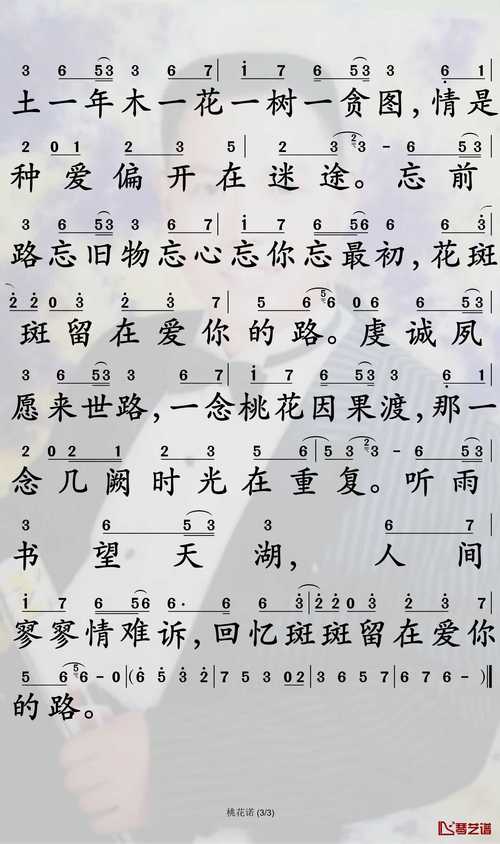 3 6 53 3 6 7 | i 7 6 53 3 6 1
土一年木一花一树一贪图,情是
2 01 2 3 5 | 2 3 2 3 - 6 53
种爱偏开在迷途。忘前
3 6 53 3 6 7 | i 7 6 56 6 6 3
路忘旧物忘心忘你忘最初,花斑
2 2 0 3 2 3 7 | 5 6 5 6 0 6 6 53
斑留在爱你的路。虔诚夙
3 6 53 3 6 7 | i 7 6 53 3 6 1
愿来世路,一念桃花因果渡,那一
2 02 2 1 2 3 5 6 | 5 3 2 3 - 6 53
念几阙时光在重复。听雨
3 6 5 3 3 6 7
书望天湖,人间
i 7 6 56 6· 6 6 3 | 2 2 0 3 2 3 7
寥寥情难诉,回忆斑斑留在爱你
5 6 5 6 - 0 | (6 5 3 2 | 7 5 3 02 | 3 6 5 7 | 6 7 6 - ||
的路。
桃花诺 (3/3)
琴艺谱